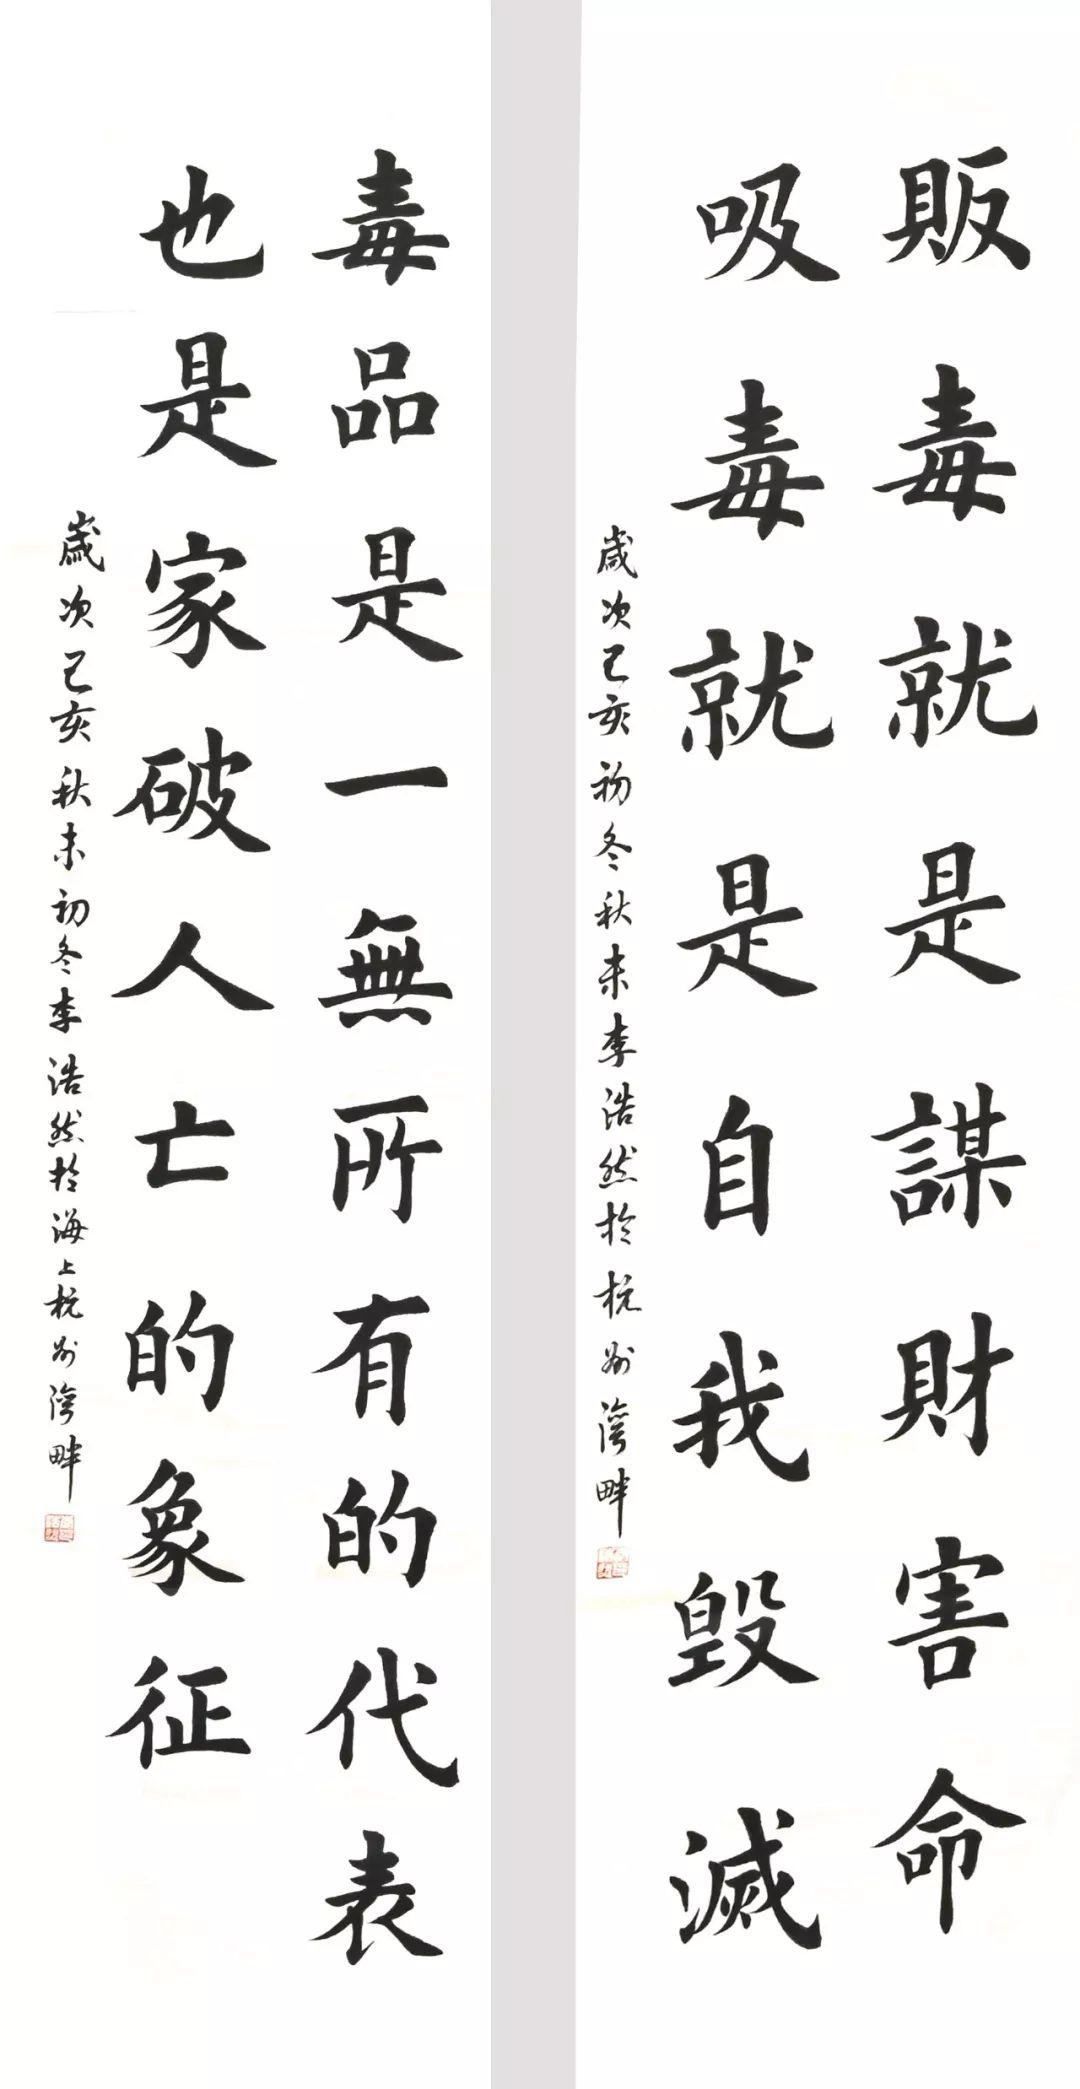 販毒就是謀財害命
吸毒就是自我毀滅
歲次己亥初冬秋末李浩然於杭州灣畔
毒品是一無所有的代表
也是家破人亡的象征
歲次己亥秋末初冬李浩然於海上杭州灣畔